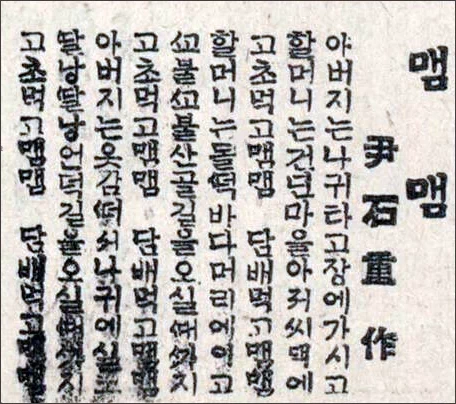 맴 맴
尹石重 作
아버지는나귀타고장에가시고
할머니는건넌마을아저씨댁에
고초먹고맴맴 담배먹고맴맴
할머니는돌떡바다머리에이고
ᄭᅩ불ᄭᅩ불산골길을오실ᄯᅢᄭᅡ지
고초먹고맴맴 담배먹고맴맴
아버지는옷감ᄯᅥ서나귀에실고
달낭달낭언덕길을오실ᄯᅢᄭᅡ지
고초먹고맴맴 담배먹고맴맴